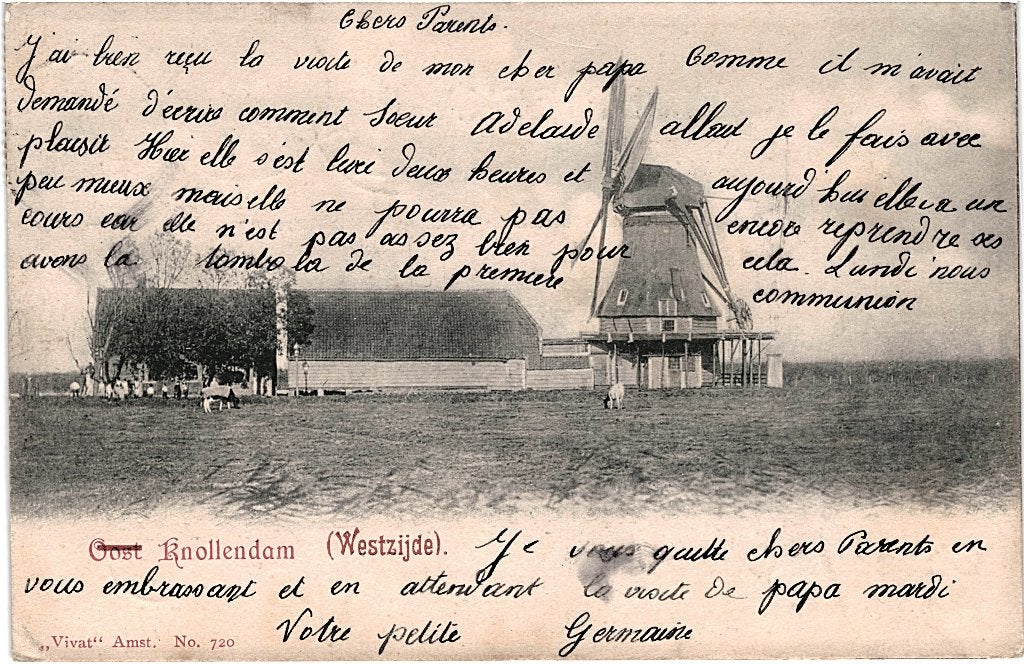 Chers Parents.
J'ai bien reçu la visite de mon cher papa Comme il m'avait
demandé d'écrire comment Soeur Adelaïde allait je le fais avec
plaisir Hier elle s'est levé deux heures et aujourd'hui elle va un
peu mieux mais elle ne pourra pas encore reprendre ses
cours car elle n'est pas assez bien pour cela. Lundi nous
avons la tombola de la première communion
Oost Knollendam (Westzijde). Je vous quitte chers Parents en
vous embrassant et en attendant la visite de papa mardi
Votre petite Germaine
„Vivat“ Amst. No. 720